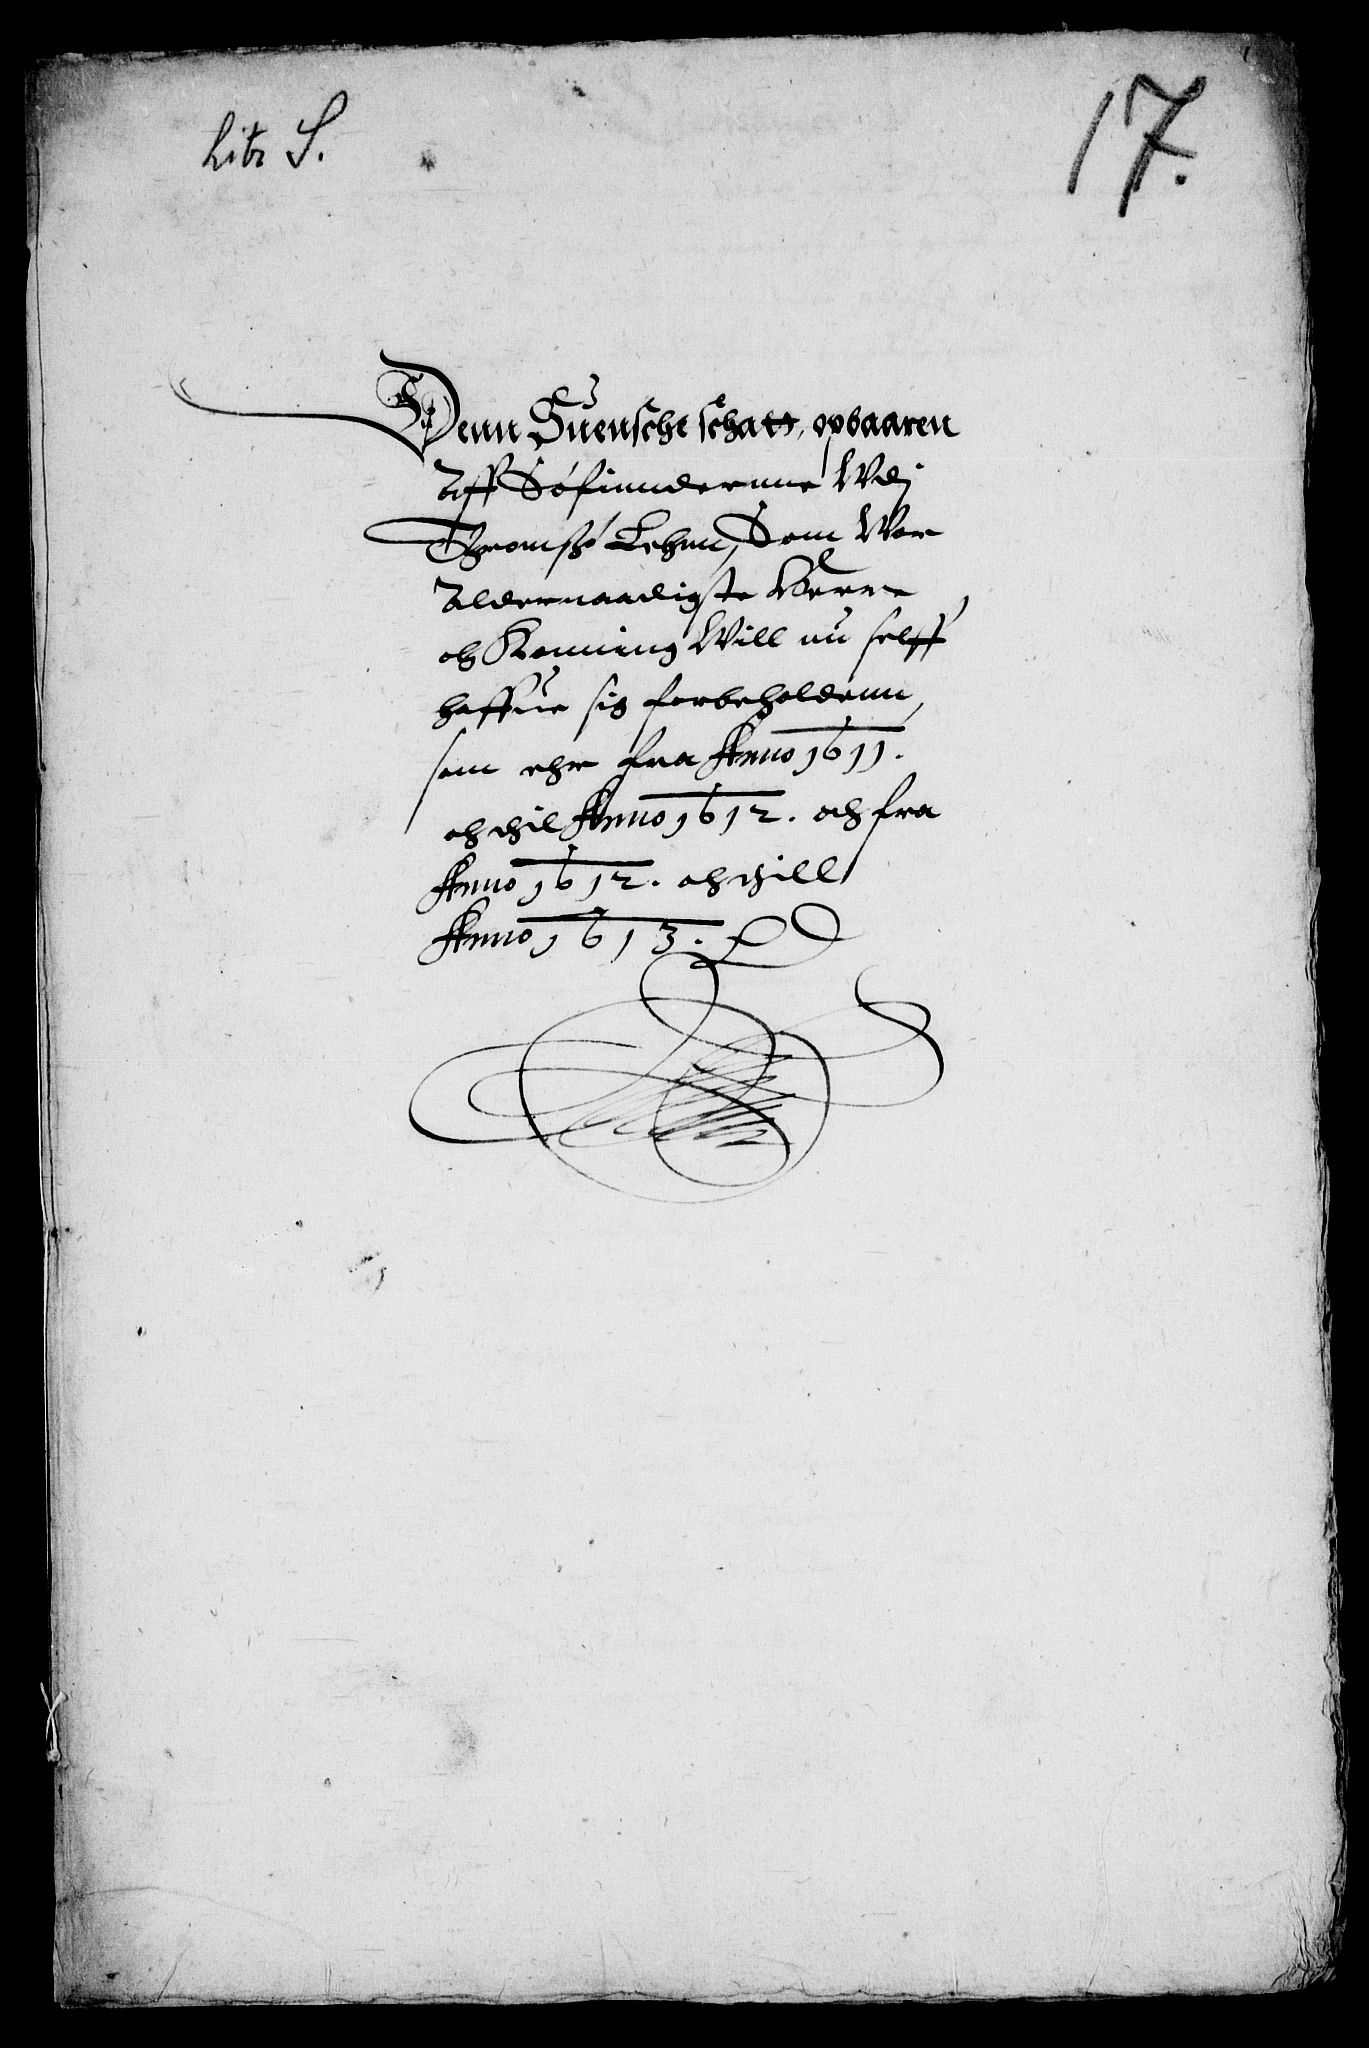 Litr S.
17.
Denn Suensche schatt, opbaaren
Aff Søfinndernne Wdj
Thromsø Lehnn, Som Wor
Aldernaadigste Herre
oc Konning Will nu selff
haffue sig forbeholdenn,
som ehr fra Anno 1611.
och thil Anno 1612. och fra
Anno 1612. och thill
Anno 1613.